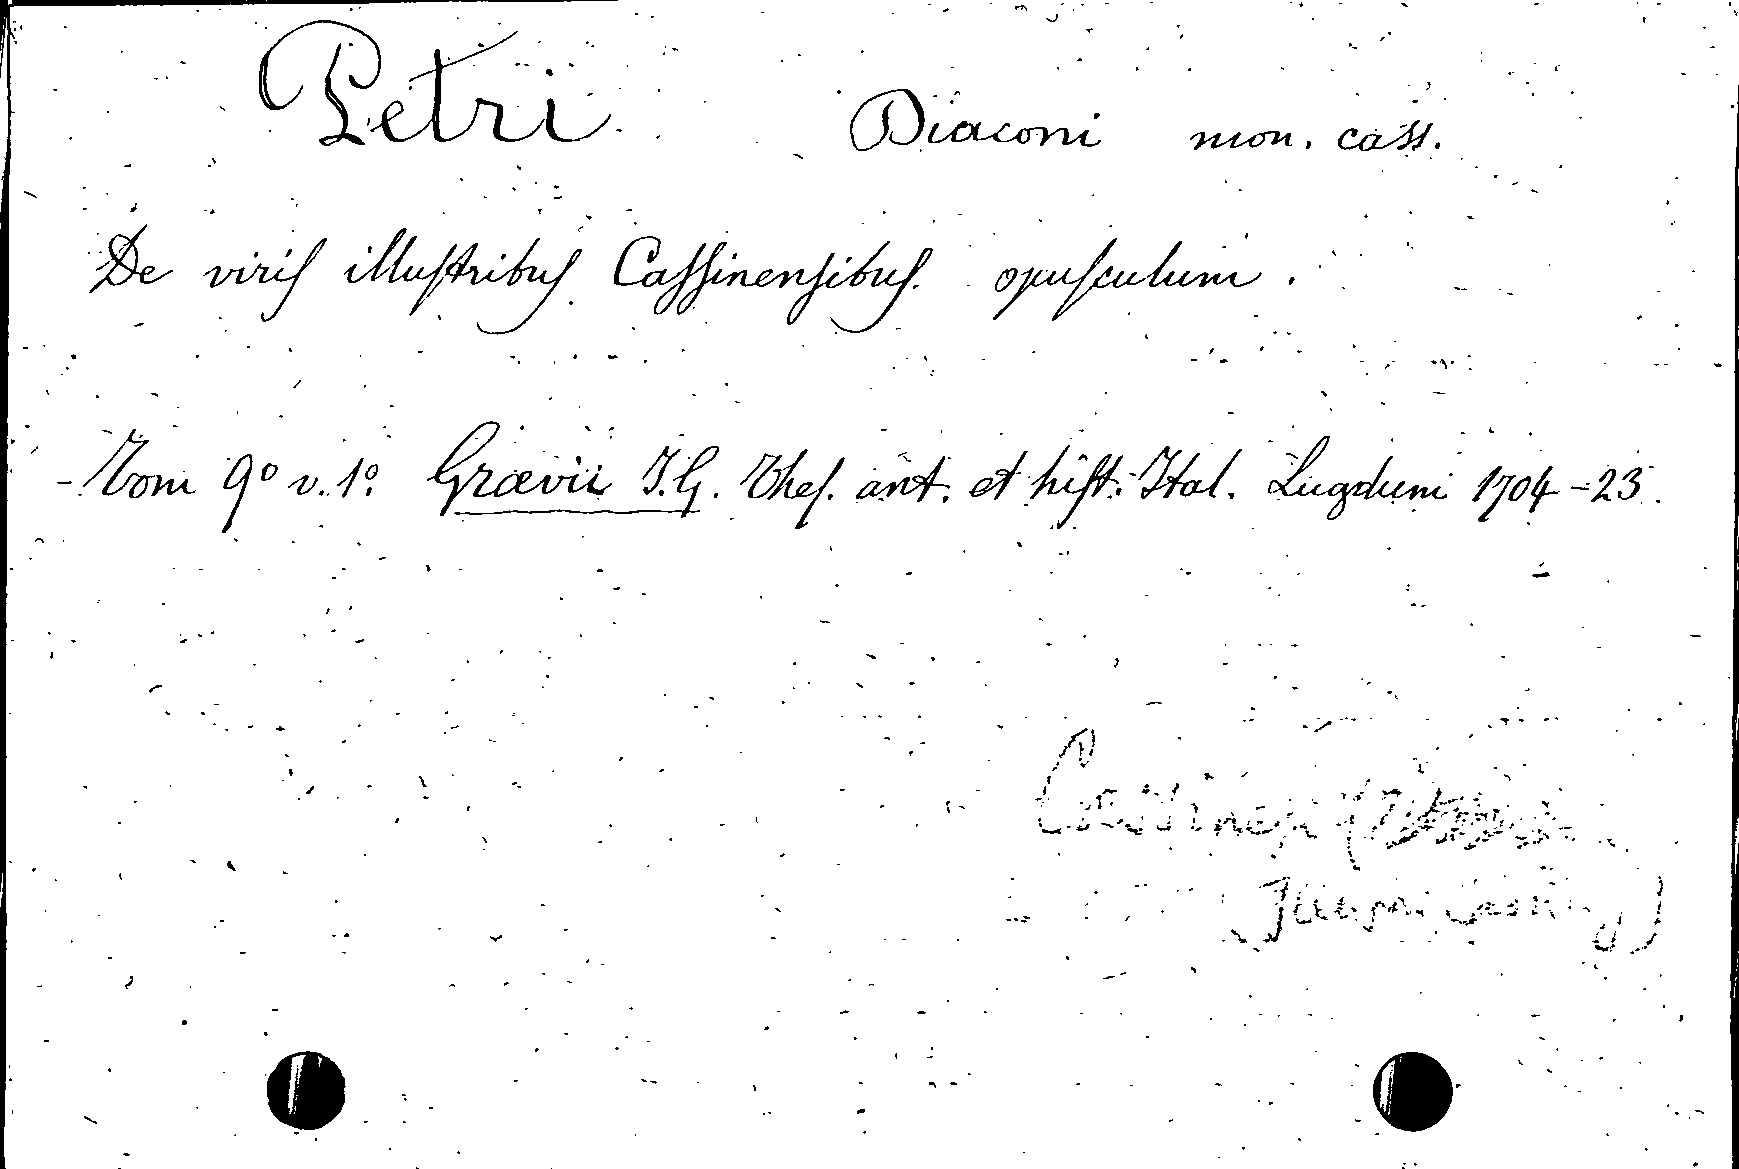 Petri Diaconi mon. cass.
De viriſ illuſtribuſ Caſſinenſibuſ. opuſculum.
- Tom 9º v. 1º. Grævii J. G. Theſ. ant. et hiſt. Ital. Lugduni 1704-23.